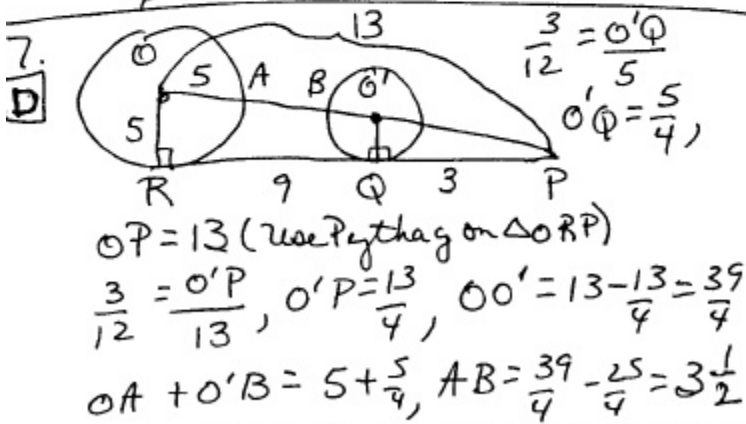 7.
D
O 5 A B O' 13
5
R 9 Q 3 P
3/12 = O'Q/5
O'Q = 5/4,
OP = 13 (Use Pythag on △ORP)
3/12 = O'P/13, O'P = 13/4, OO' = 13 - 13/4 = 39/4
OA + O'B = 5 + 5/4, AB = 39/4 - 25/4 = 3 1/2